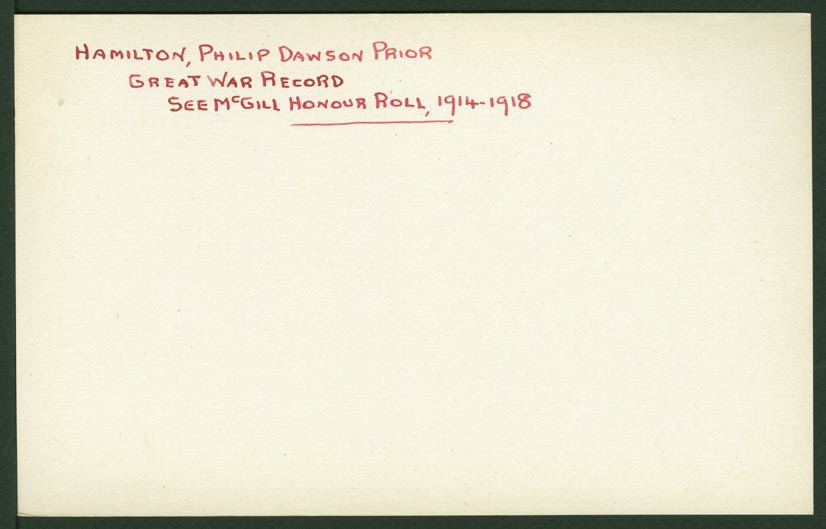 HAMILTON, PHILIP DAWSON PRIOR
GREAT WAR RECORD
SEE McGILL HONOUR ROLL, 1914-1918